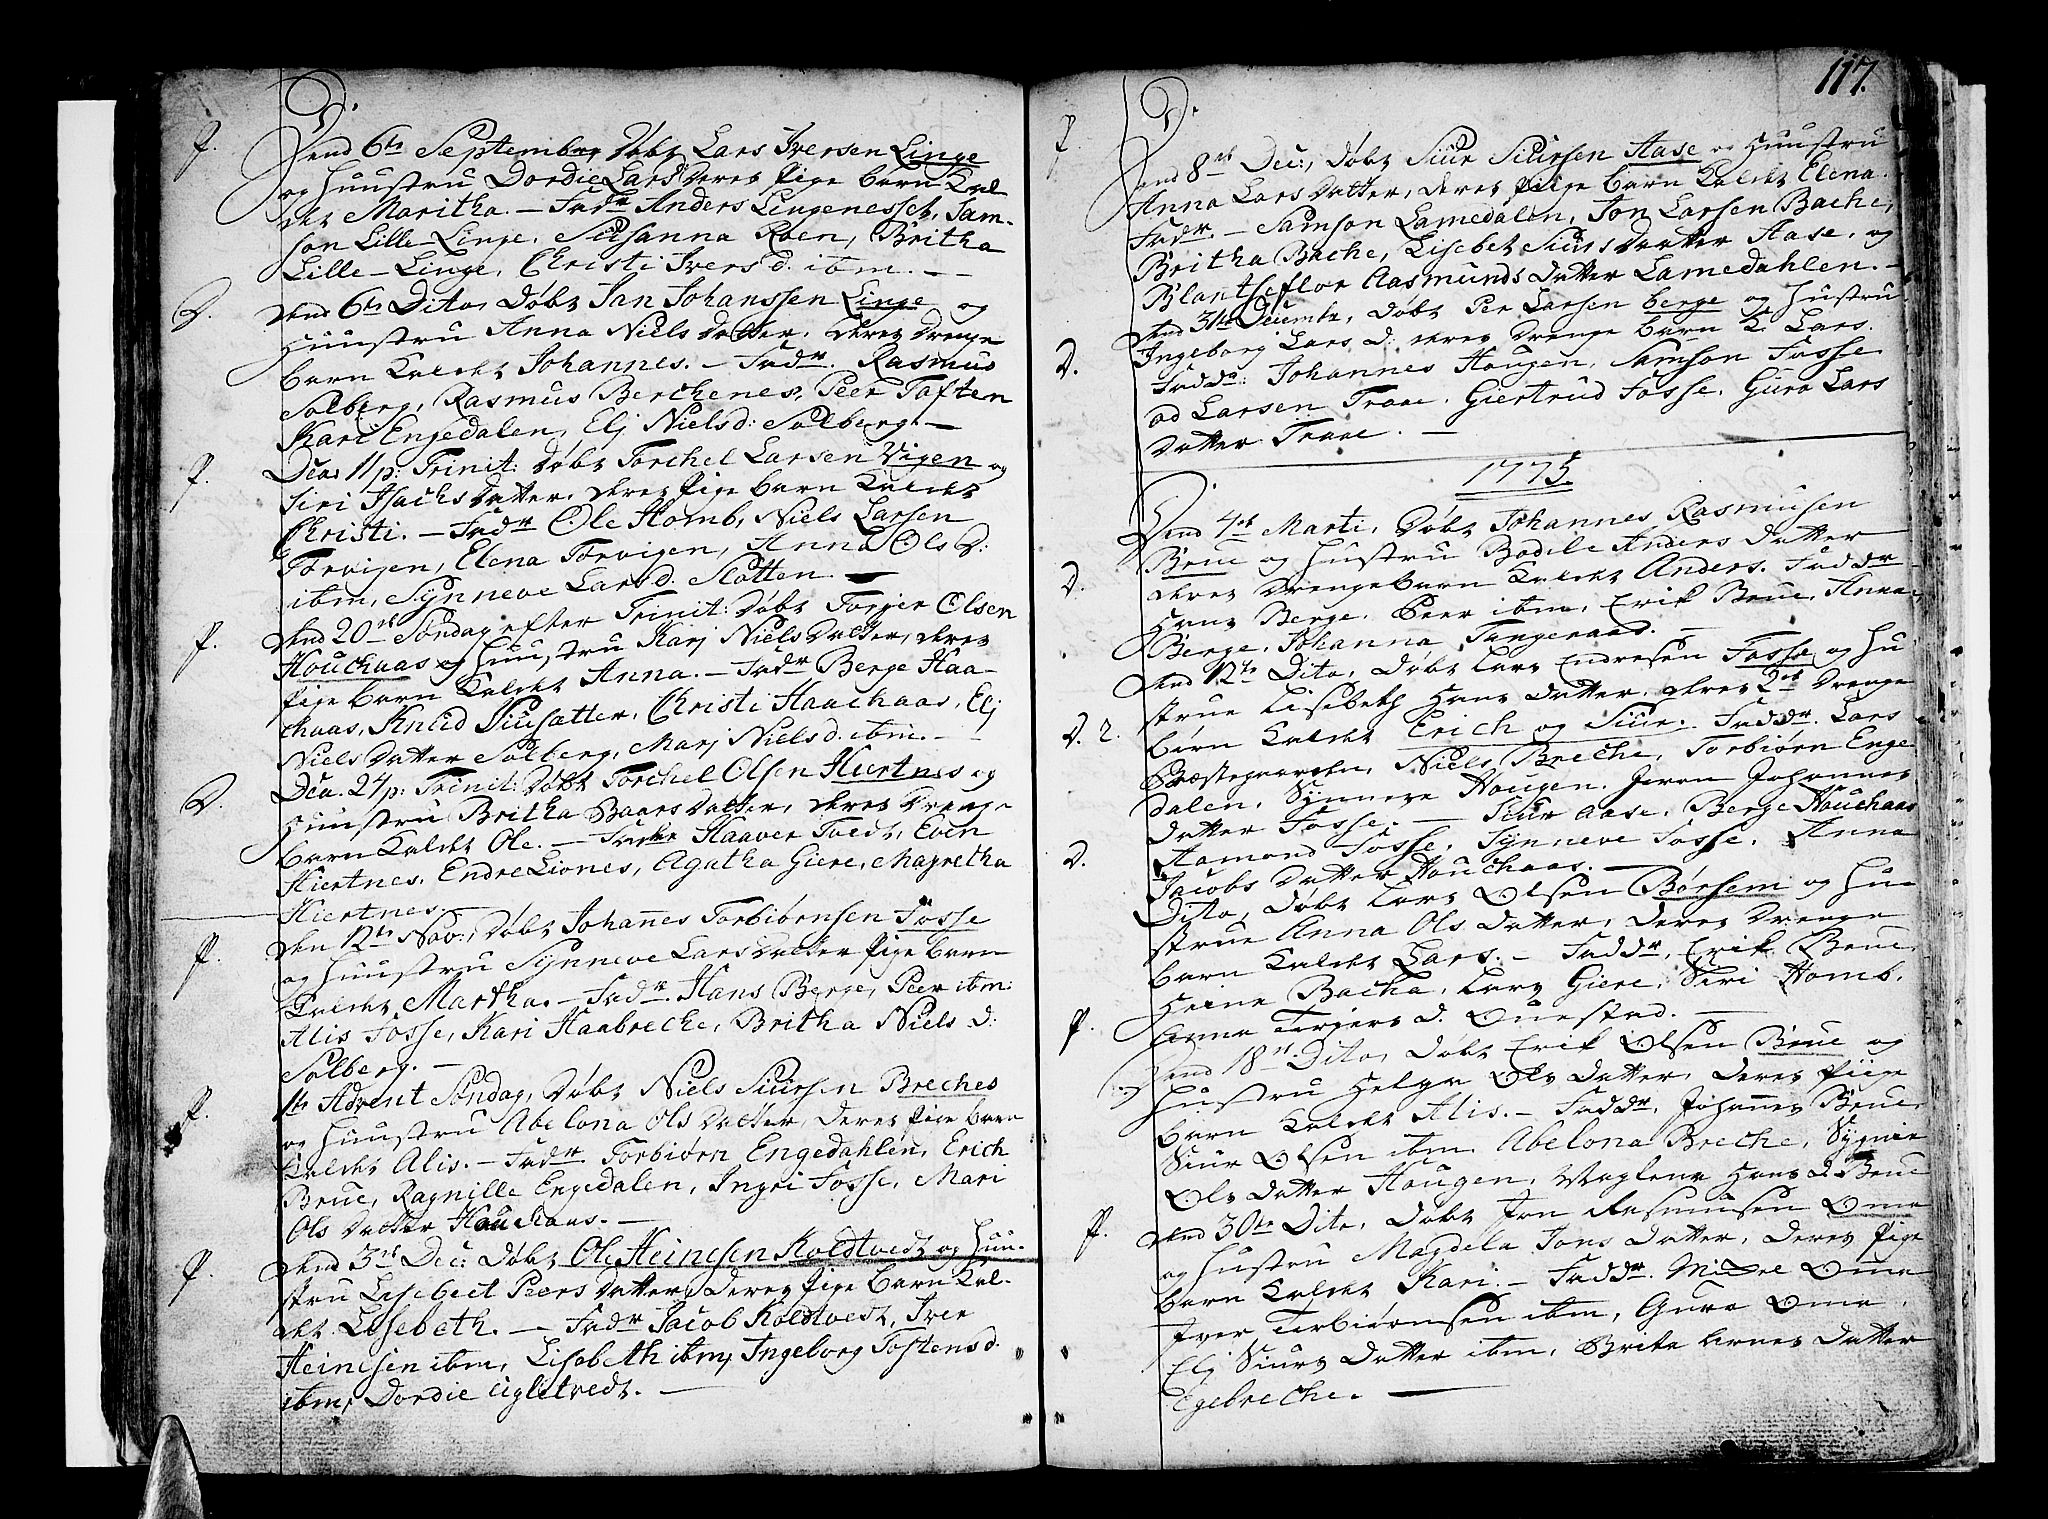 P.
Dend 6te September, Døbt Lars Iversen Linge
og Huustru Dordie Lars D. deres Pige barn Kal
det Maritha. — Fadr Anders Lingenesset, Sam-
son Lille-Linge, Susanna Roen, Britha
Lille-Linge, Christi Ivers d. ibm. —
D.
Dend 6te Dito, Døbt Jan Johanssen Linge og
Huustru Anna Niels Datter, deres Drenge
barn Kaldet Johannes. — Fadr. Rasmus
Solberg, Rasmus Berchenes, Peer Toften
Kari Engedalen, Elj Niels d: Solberg. —
P.
Dca. 11 p: Trinit: Døbt Torchel Larsen Vigen og
Siri Isachs Datter, deres Pige barn Kaldet
Christi. — Fadr Ole Homb, Niels Larsen
Torvigen, Elena Torvigen, Anna Ols D:
ibm, Synneve Lars d. Slotten. —
P.
Dend 20de Søndag efter Trinit: Døbt Torjer Olsen
Houchaas og Huustru Karj Niels Datter, deres
Pige barn Kaldet Anna. — Fadr Berge Haa-
chaas, Knud Siusætter, Christi Haachaas, Elj
Niels Datter Solberg, Marj Niels d. ibm. —
D.
Dca. 24 p: Trinit: Døbt Torchel Olsen Hiertnes og
Huustru Britha Baars Datter, deres Drenge
barn Kaldet Ole. — Fadr Haaver Tvedt, Even
Hiertnes, Endre Liones, Agatha Giere, Magretha
Hiertnes. —
P.
Den 12te Nov:, Døbt Johannes Torbiørnsen Fosse
og Huustru Synneve Lars Datter Pige barn
Kaldet Martha. — Fadr. Hans Berge, Peer ibm:
Alis Fosse, Kari Haabreche, Britha Niels d:
Solberg. —
P.
1te Advent Søndag, Døbt Niels Siursen Breches
og Huustru Abelona Ols Datter, deres Pige barn
Kaldet Alis. — Fadr Torbiørn Engedahlen, Erich
Brue, Ragnille Engedalen, Ingri Fosse, Mari
Ols Datter Houchaas. —
P.
Dend 3de Dec: Døbt Ole Heinesen Koldtvedt og Huu-
stru Lisebeet Peers Datter, deres Pige barn Kal-
det Lisebeth. — Fadr Jacob Koldtvedt, Iver
Heinesen ibm, Lisebeth ibm, Ingeborg Tostens d.
ibm, Dordie Uglitvedt. —
117.
P.
Dend 8de Dec:, Døbt Siur Siursen Aase og Huustru
Anna Lars Datter, deres Pige barn Kaldet Elena.
Fadr. — Samson Lamedalen, Jon Larsen Bache,
Britha Bache, Lisebet Siurs Datter Aase, og
Blantseflor Aasmunds Datter Lamedahlen. —
D.
Dend 31te Decembr, Døbt Per Larsen berge og Hustru
Ingeborg Lars D: deres Drenge barn K: Lars.
Faddr: Johannes Hougen, Samson Fosse
od Larsen Traae, Giertrud Fosse, Guro Lars
Datter Traae. —
1775.
D.
Dend 4de Marti, Døbt Johannes Rasmusen
Brue og Hustru Bodile Anders Datter
deres Drengebarn Kaldet Anders. Faddr
Hans Berge, Peer ibm, Erik Brue, Anna
Berge, Johanna Tangeraas. —
D. 2.
Dend 12te Dito, Døbt Lars Endresen Fosse og Hu
strue Lisebeth Hans Datter, deres 2de Drenge
børn Kaldet Erich og Siur. Faddr. Lars
Præstegaarden, Niels Breche, Torbiørn Enge
dalen, Synneve Hougen, Johannes
Datter Fosse. — Siur Aase, Berge Houchaas
Aamond Fosse, Synneve Fosse, Anna
Jacobs Datter Houchaas. —
D.
Dito, Døbt Lars Olsen Børsem og Hu
strue Anna Ols Datter, deres Drenge
barn Kaldet Lars. — Faddr, Erik Brue
Heine Bacha, Lars Giere, Siri Homb,
Anna Torjers d. Ouestad. —
P.
Dend 18de Dito, Døbt Erik Olsen Brue og
Hustru Helga Ols Datter, deres Piige
barn Kaldet Alis. — Faddr, Johannes Brue
Siur Olsen ibm Abelona Breche, Sygnie
Ols Datter Hougen, Maglena Hans d. Brue
P.
Dend 30te Dito, Døbt Jon Rasmusen Ome
og Hustru Magdela Jons Datter, deres Pige
barn Kaldet Kari. — Faddr. Ome
Iver Torbiørnsen ibm, Guro Ome,
Elj Siurs Datter ibm, Brita Arnes Datter
Egebreche. —